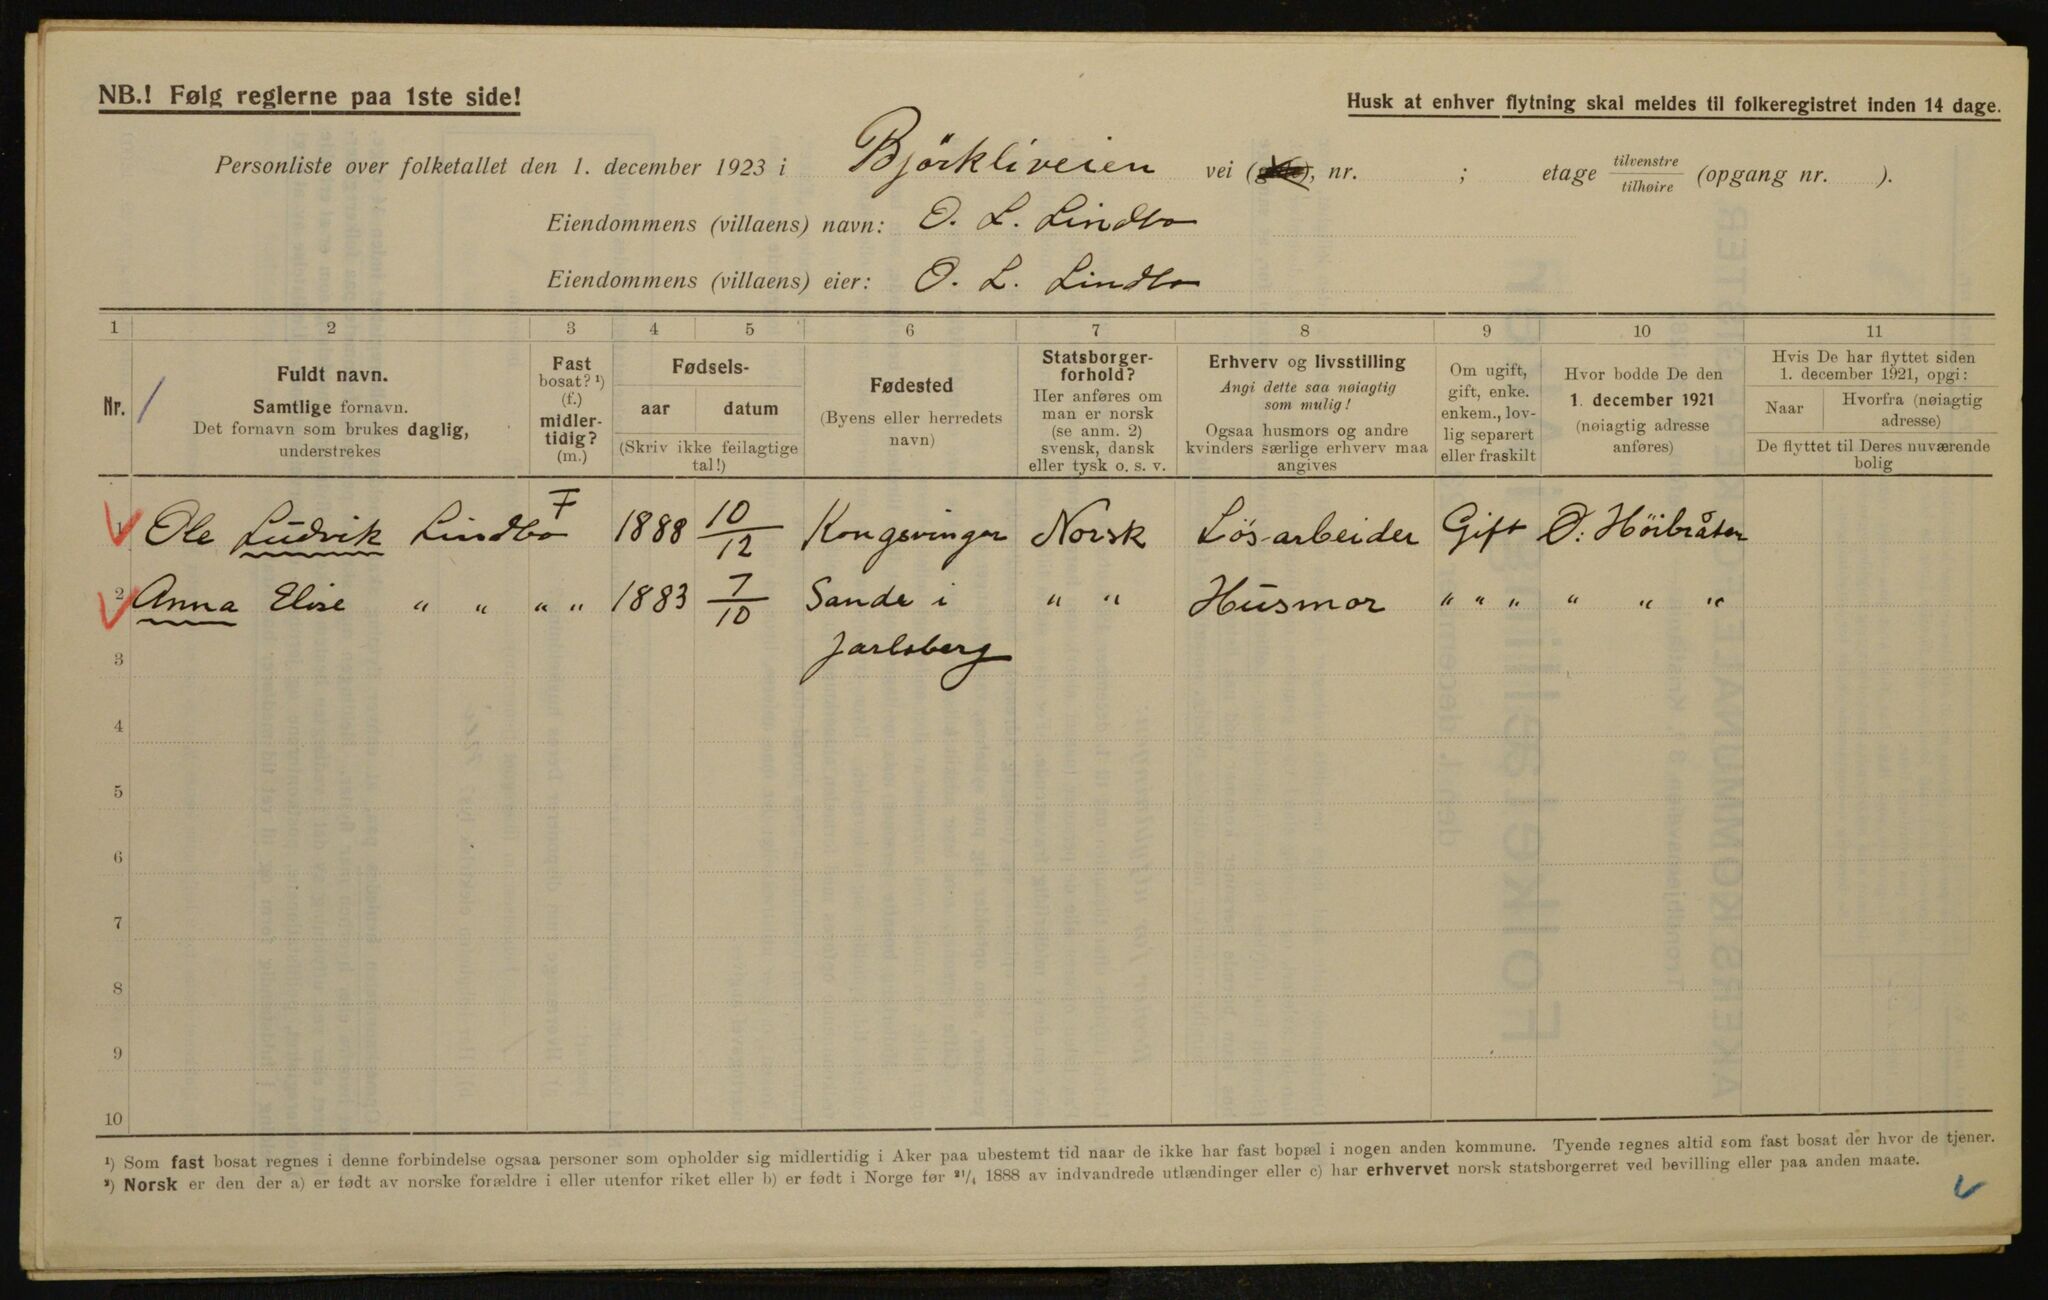 NB.! Følg reglerne paa 1ste side!
Husk at enhver flytning skal meldes til folkeregistret inden 14 dage.
Personliste over folketallet den 1. december 1923 i Björkliveien vei (gate), nr. ; etage tilvenstre tilhøire (opgang nr. ).
Eiendommens (villaens) navn: O. L. Lindbo
Eiendommens (villaens) eier: O. L. Lindbo
1 2 3 4 5 6 7 8 9 10 11
Nr.
Fuldt navn.
Samtlige fornavn.
Det fornavn som brukes daglig,
understrekes
Fast
bosat? ¹)
(f.)
midler-
tidig?
(m.)
Fødsels-
aar datum
(Skriv ikke feilagtige
tal!)
Fødested
(Byens eller herredets
navn)
Statsborger-
forhold?
Her anføres om
man er norsk
(se anm. 2)
svensk, dansk
eller tysk o. s. v.
Erhverv og livsstilling
Angi dette saa nøiagtig
som mulig!
Ogsaa husmors og andre
kvinders særlige erhverv maa
angives
Om ugift,
gift, enke.
enkem., lov-
lig separert
eller fraskilt
Hvor bodde De den
1. december 1921
(nøiagtig adresse
anføres)
Hvis De har flyttet siden
1. december 1921, opgi:
Naar
Hvorfra (nøiagtig
adresse)
De flyttet til Deres nuværende
bolig
1 Ole Ludvik Lindbo F 1888 10/12 Kongsvinger Norsk Lösarbeider Gift Ö. Höibråten
2 Anna Elise " " " " 1883 7/10 Sande i " " Husmor " " " " " "
Jarlsberg
3
4
5
6
7
8
9
10
¹) Som fast bosat regnes i denne forbindelse ogsaa personer som opholder sig midlertidig i Aker paa ubestemt tid naar de ikke har fast bopæl i nogen anden kommune. Tyende regnes altid som fast bosat der hvor de tjener.
²) Norsk er den der a) er født av norske forældre i eller utenfor riket eller b) er født i Norge før ²¹/₄ 1888 av indvandrede utlændinger eller c) har erhvervet norsk statsborgerret ved bevilling eller paa anden maate.